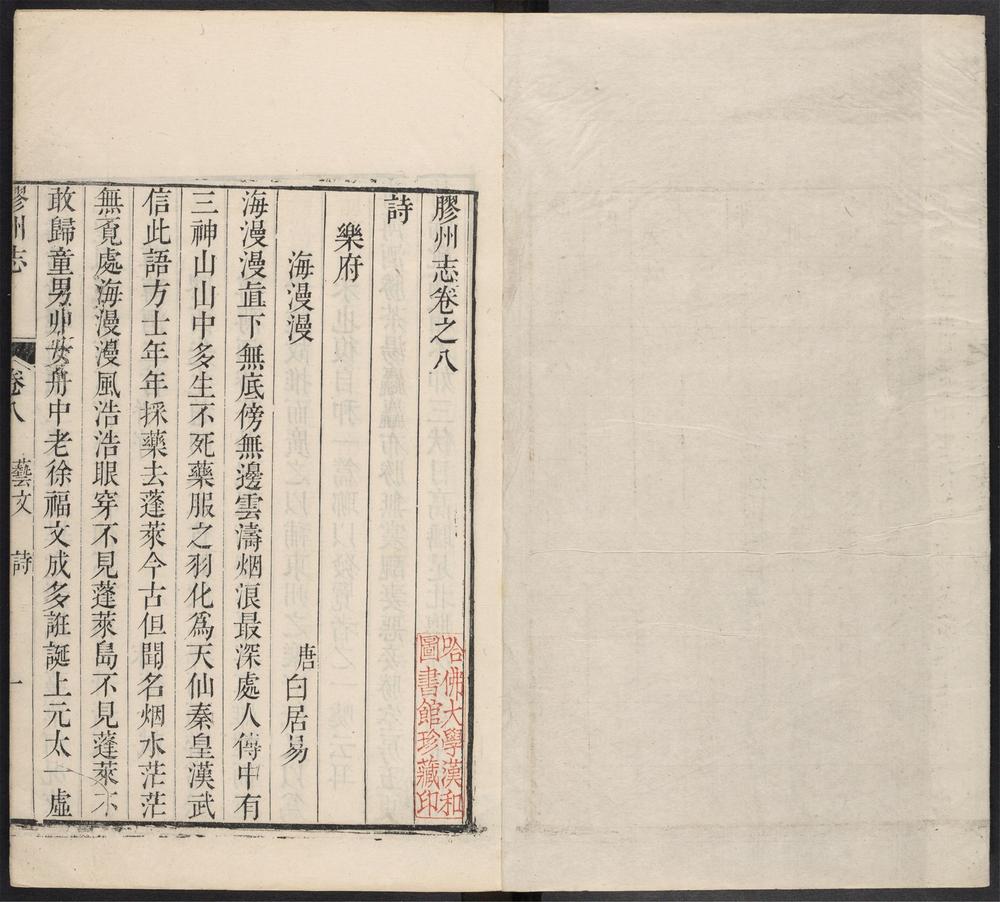 膠州志卷之八
詩
樂府
海漫漫
唐白居易
海漫漫直下無底傍無邊雲濤烟浪最深處人傳中有
三神山山中多生不死藥服之羽化爲天仙秦皇漢武
信此語方士年年採藥去蓬萊今古但聞名烟水茫茫
無覔處海漫漫風浩浩眼穿不見蓬萊島不見蓬萊不
敢歸童男丱女舟中老徐福文成多誑誕上元太一虛
膠州志
卷八
藝文
詩
一
哈佛大學漢和
圖書館珍藏印